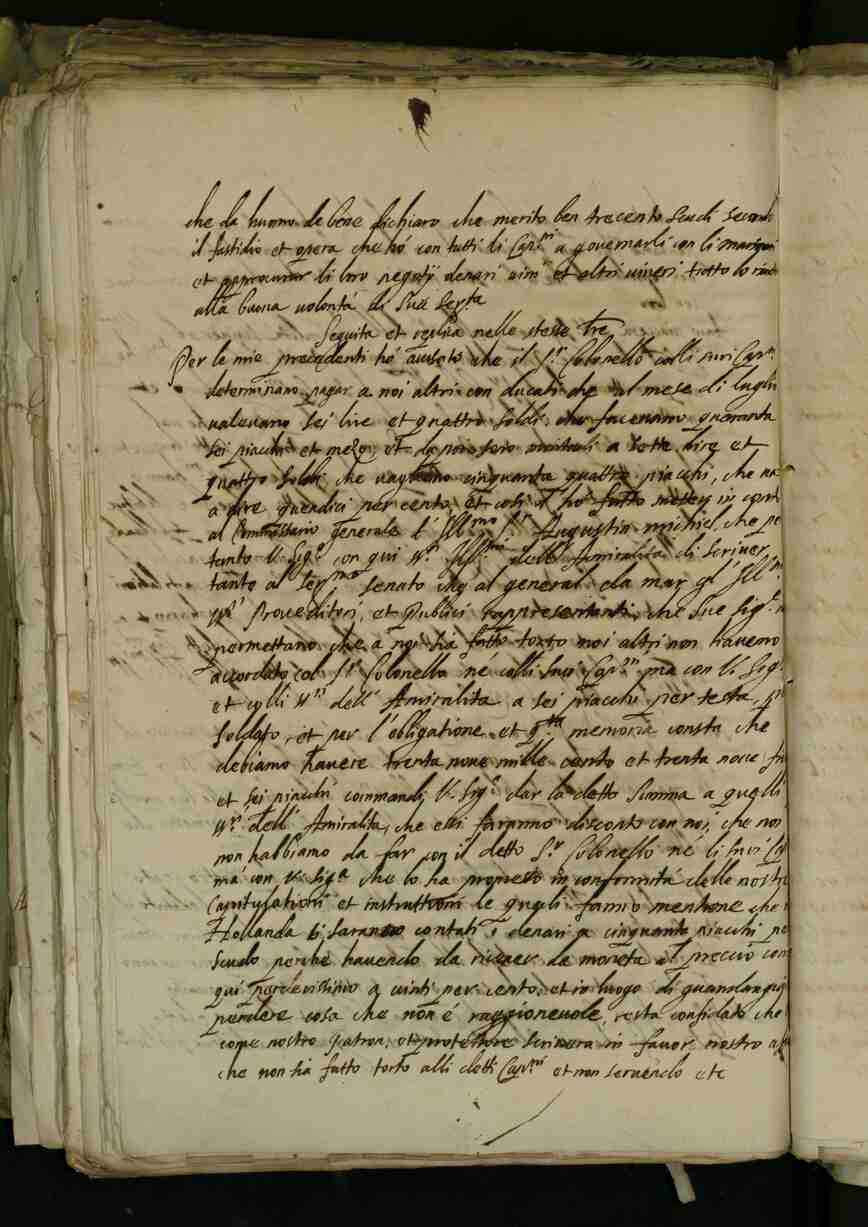 che da huomo da bene dichiaro che merito ben trecento scudi secondo
il fastidio et opera che hó con tutti li Cap.ni a governarli con li
et li loro negotij denari et altri viveri tutto lo
alla buona volontá di Sua Ser.ta
Seguita et replica nelle stesse l're
Per le mie precedenti hó avisato che il S.r Colonello colli suoi Cap.ni
determinano pagar a noi altri con ducati che al mese di luglio
valevano sei lire et quattro soldi, che facevano quaranta
sei piacchi et mezo, et da poi sono a sette lire et
quattro soldi che vagliono cinquanta quattro piacchi, che va
a dire quendici per cento, et cosi il hó fatto
al Commissario generale l' Ill.mo S.r Augustin Michiel, che per
tanto V. Sig.a con qui SS.ri dell' Amiralita di scriver
tanto al Ser.mo Senato che al general da mar gl' Ill.mi
SS.ri Proveditori, et Publici rappresentanti, che Sue Sig.e n
permettano che a noi sia fatto torto noi altri non havemo
accordato col S.r Colonello né colli suoi Cap.ni ma con V. Sig.a
et colli SS.ri dell' Amiralita a sei piacchi per testa, per
soldato, et per l'obligatione et memoria consta che
debiamo havere trenta nove mille cento et trenta nove
et sei piacchi commandi V. Sig.a dar la detta summa a quelli
SS.ri dell' Amiralita, che essi faranno disconto con noi, che noi
non habbiamo da far con il detto S.r Colonello né li suoi
ma con V. Sig.a che lo ha promesso in conformitá delle nostre
Capitulationi et instruttioni le quali fanno mentione che
Hollanda li saranno contati i denari a cinquanta piacchi per
scudo perche havendo da ricever la moneta al precio
qui perderissimo a vinti per cento, et in luogo di
perdere cosa che non é raggionevole, resta confidato che
come nostro patron, et protettore scrivera in favor nostro
che non sia fatto torto alli detti Cap.ni et non servendo etc